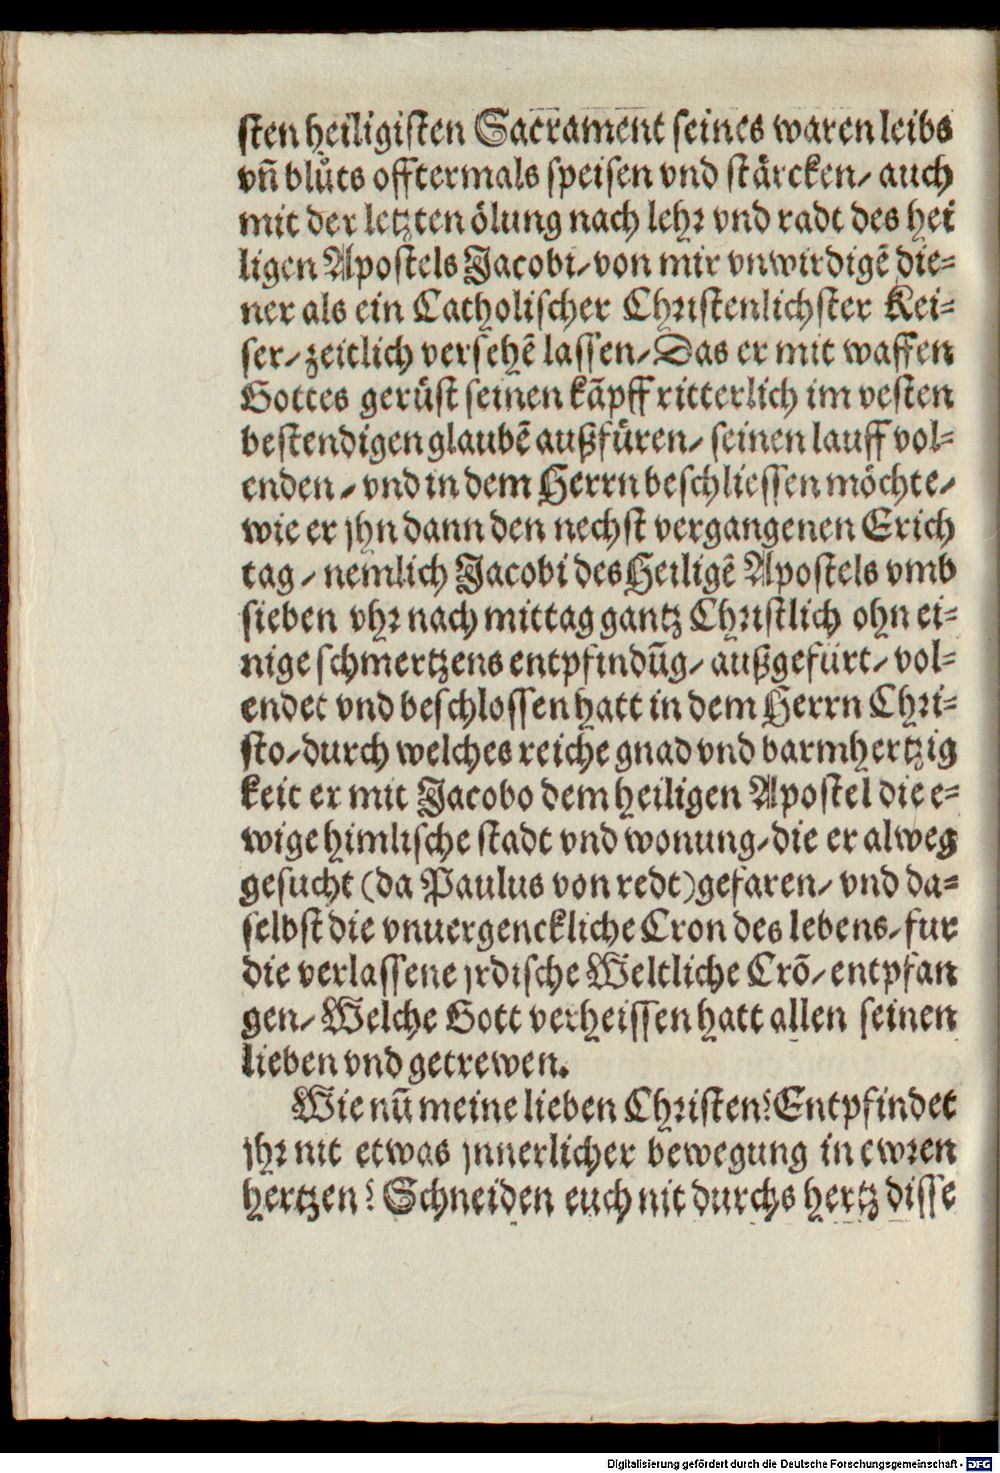 sten heiligisten Sacrament seines waren leibs
vñ blůts offtermals speisen vnd stärcken/ auch
mit der letzten ölung nach lehr vnd radt des hei
ligen Apostels Jacobi/ von mir vnwirdigē die-
ner als ein Catholischer Christenlichster Kei-
ser/ zeitlich versehē lassen/ Das er mit waffen
Gottes gerüst seinen kāpff ritterlich im vesten
bestendigen glaubē außfüren/ seinen lauff vol-
enden/ vnd in dem Herrn beschliessen möchte/
wie er jhn dann den nechst vergangenen Erich
tag/ nemlich Jacobi des Heiligē Apostels vmb
sieben vhr nach mittag gantz Christlich ohn ei-
nige schmertzens entpfindūg/ außgefürt/ vol-
endet vnd beschlossen hatt in dem Herrn Chri-
sto/ durch welches reiche gnad vnd barmhertzig
keit er mit Jacobo dem heiligen Apostel die e-
wige himlische stadt vnd wonung/ die er alweg
gesucht (da Paulus von redt) gefaren/ vnd da-
selbst die vnuergenckliche Cron des lebens/ fur
die verlassene jrdische Weltliche Crō/ entpfan
gen/ Welche Gott verheissen hatt allen seinen
lieben vnd getrewen.
Wie nū meine lieben Christen? Entpfindet
jhr nit etwas jnnerlicher bewegung in ewren
hertzen? Schneiden euch nit durchs hertz disse
Digitalisierung gefördert durch die Deutsche Forschungsgemeinschaft - DFG